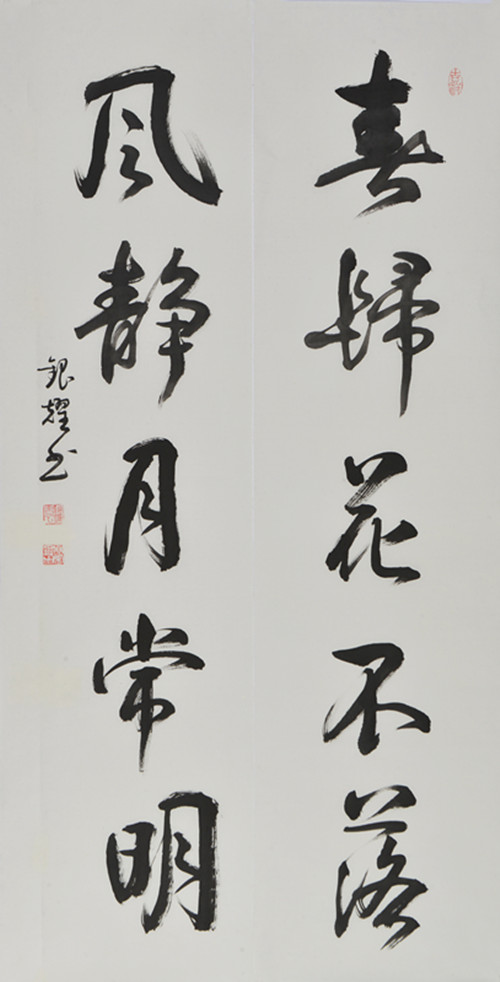 春歸花不落
风静月常明
銀耀书